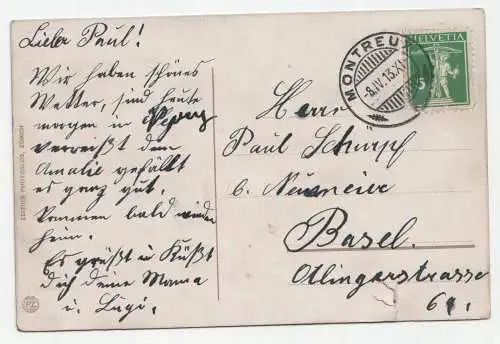 Lieber Paul!
Wir haben schönes
Wetter, sind heute
morgen in
verreißt dem
Amalie gefällt
es ganz gut.
kommen bald wieder
heim.
Es grüßt u. Küßt
dich deine Mama
u. Luggi.
EDITION PHOTOGLOB, ZÜRICH
PZ
MONTREUX
-8.IV.13.XI
HELVETIA
5
Herrn
Paul Schurpf
b. Neumeier
Basel.
Otlingerstrasse
64.